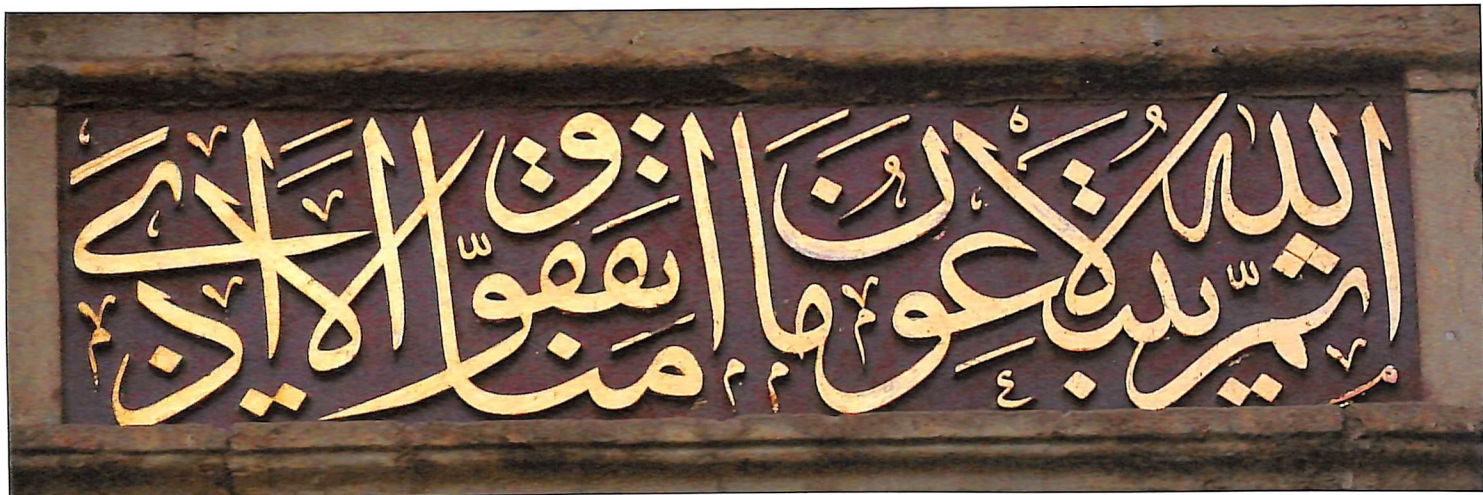 الله ثم لا يتبعون ما انفقوا منا ولا اذى